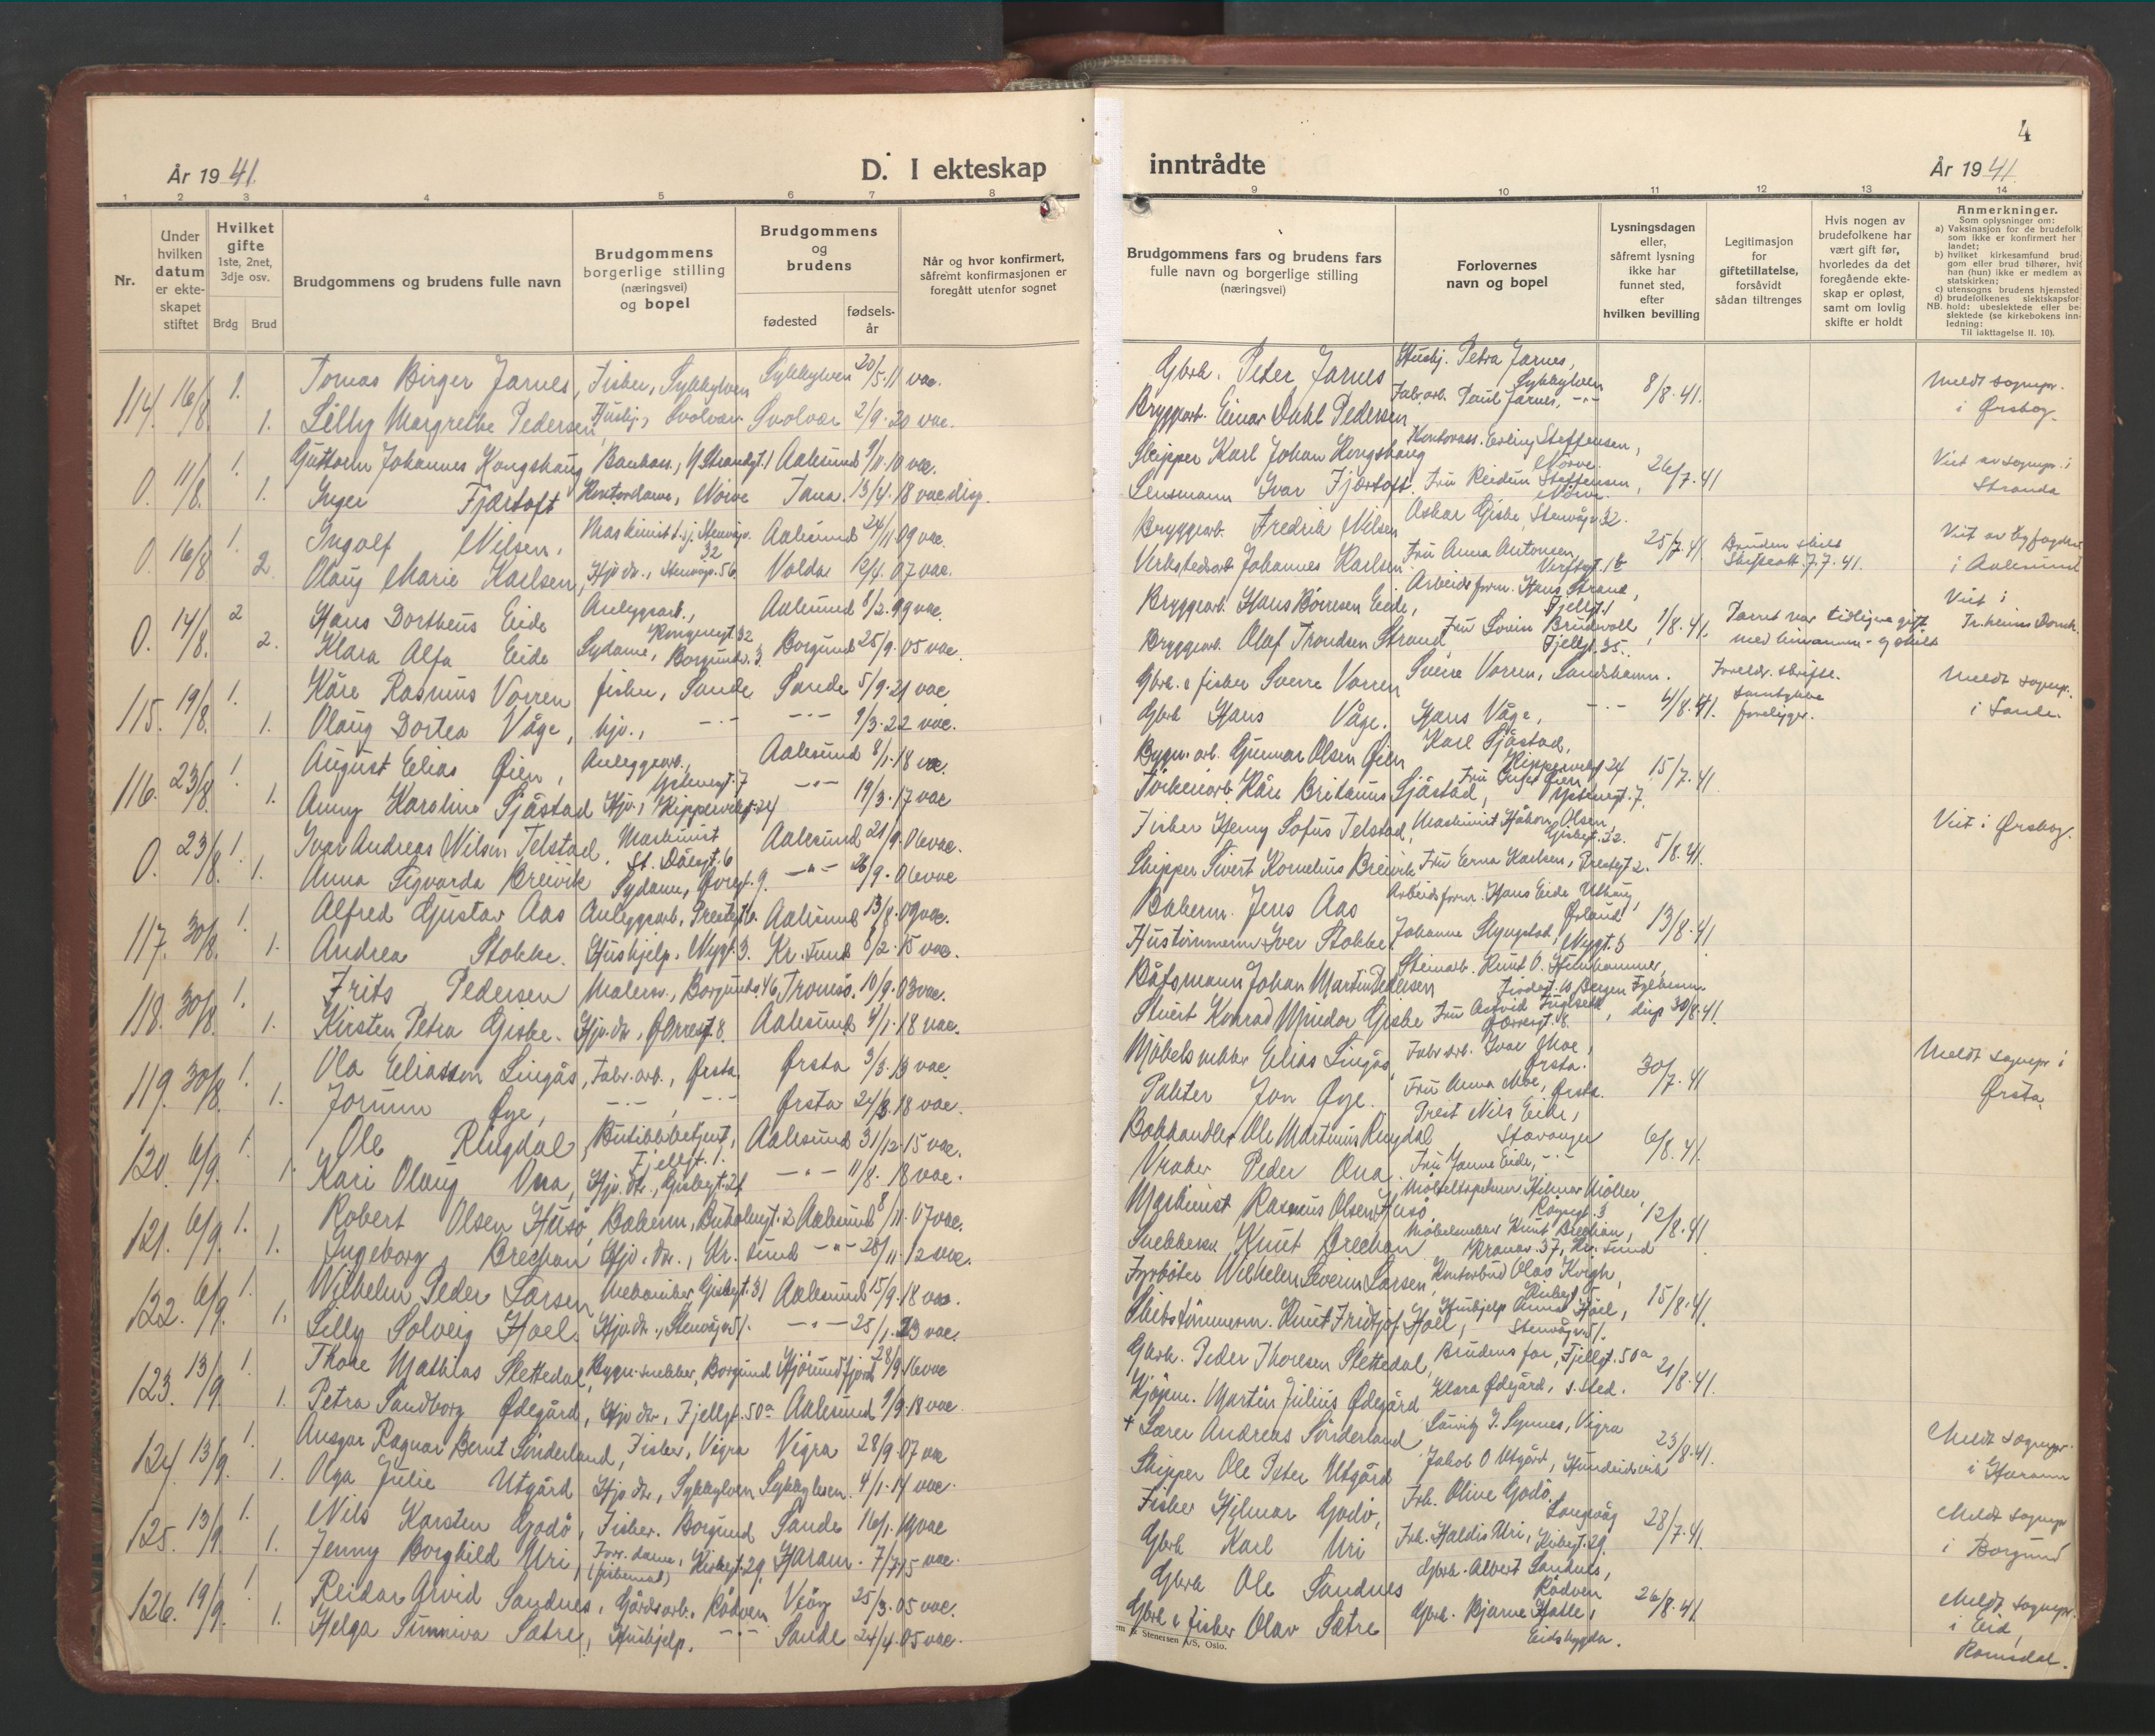 År 1941. D. I ekteskap
1 2 3 4 5 6 7 8
Nr. Under hvilken datum er ekteskapet stiftet
Hvilket gifte 1ste, 2net, 3dje osv. Brdg Brud
Brudgommens og brudens fulle navn
Brudgommens borgerlige stilling (næringsvei) og bopel
Brudgommens og brudens fødested fødselsår
Når og hvor konfirmert, såfremt konfirmasjonen er foregått utenfor sognet
114. 16/8. 1. Tomas Birger Jarnes, Fisker, Sykkylven Sykkylven 20/5.11 vac.
1. Lilly Margrethe Pedersen, Hushj., Svolvær Svolvær 2/9.20 vac.
0. 11/8. 1. Guttorm Johannes Kongshaug Bankass., Aalesund 9/11.10 vac.
1. Inger Fjørtoft Kontordame, Nörve Tana. 13/4.18 vac. disp.
0. 16/8 1. Ingolf Nilsen, Maskinist Stenvågv. 32 Aalesund 24/11.09 vac.
2. Olaug Marie Karlsen, Hjv. dr., Stenvågv. 56 Volda 12/4.07 vac.
0. 14/8. 2 Hans Dortheus Eide Anleggsarb., Kongensgt. 32 Aalesund 8/2.99 vac.
2. Klara Alfa Eide Sydame, Borgundv. 3. Borgund 25/9.05 vac.
115. 19/8. 1. Kåre Rasmus Vorren fisker, Sande Sande 5/9.21 vac
1. Olaug Dortea Våge, hjv., -.- -.- 9/3.22 vac.
116. 23/8. 1. August Elias Øien, Anleggsarb., Ystenesgt. 7 Aalesund 8/1.18 vac.
1. Anny Karoline Sjåstad Hjv., Kippervikgt. 24 -.- 19/3.17 vac
0. 23/8. 1. Ivar Andreas Nilsen Telstad, Maskinist St. Olavsgt. 6 Aalesund 21/9.06 vac.
1. Anna Sigvarda Breivik Sydame, Øvregt. 9. -"- 26/9.06 vac
117. 30/8. 1. Alfred Gustav Aas Anleggsarb., Prestegt. 10. Aalesund 13/8.09 vac.
1. Andrea Stokke. Hushjelp. Nygt. 3. Kr. Sund 8/2.15 vac.
118. 30/8. 1. Frits Pedersen Malersv., Borgundv. 46 Tromsö. 10/9.03 vac.
1. Kirsten Petra Giske. Hjv. dr., 8. Aalesund 4/1.18 vac.
119. 30/8. 1. Ola Eliassen Lingås, Fabr. arb., Ørsta Ørsta 3/3.13 vac.
1. Jorunn Øye, -.-, -.- Ørsta 24/3.18 vac.
120. 6/9. 1. Ole Ringdal, Butikkbetjent, Fjellgt. 1. Aalesund 31/12.15 vac.
1. Kari Olaug Ona, Hjv. dtr., Giskegt. 21 -.- 11/8.18 vac.
121. 6/9. 1. Robert Olsen Husö, Bakerm., 2 Aalesund 8/11.07 vac.
1. Ingeborg Brechan Hjv. dtr., Kr. sund -"- 28/11.12 vac.
122. 6/9. 1. Wilhelm Peder Larsen Mekaniker, Giskegt. 31 Aalesund 15/9.18 vac.
1. Lilly Solveig Hoel. Hjv. dtr., Stenvågv. 51. -.- 25/1.23 vac.
123. 13/9. 1. Thore Mathias Slettedal, Bygn. snekker, Borgund Hjörundfjord 28/9.16 vac
1. Petra Sandborg Ødegård, Hjv dtr., Fjellgt. 50a Aalesund 9/9.18 vac
124. 13/9. 1. Ansgar Ragnar Bernt Sönderland, Fisker, Vigra Vigra 28/9.07 vac
1. Olga Julie Utgård Hjv dtr., Sykkylven Sykkylven. 4/1.14 vac.
125. 13/9. 1. Nils Karsten Godö, Fisker. Borgund Sande 16/1.19 vac
1. Jenny Borghild Uri, Forr. dame, (fiskemat) Kirkegt. 29. Haram. 7/7.15 vac.
126. 19/9. 1. Reidar Arvid Sandnes, Gårdsarb., Rödven Veöy 25/3.05 vac.
1. Helga Sunniva Sætre, Hushjelp. -.- Sande 24/4.05 vac.
4
inntrådte År 1941.
9 10 11 12 13 14
Brudgommens fars og brudens fars fulle navn og borgerlige stilling (næringsvei)
Forlovernes navn og bopel
Lysningsdagen eller, såfremt lysning ikke har funnet sted, efter hvilken bevilling
Legitimasjon for giftetillatelse, forsåvidt sådan tiltrenges
Hvis nogen av brudefolkene har vært gift før, hvorledes da det foregående ekteskap er opløst, samt om lovlig skifte er holdt
Anmerkninger.
Som oplysninger om:
a) Vaksinasjon for de brudefolk som ikke er konfirmert her i landet;
b) hvilket kirkesamfund brudgom eller brud tilhører, hvis han (hun) ikke er medlem av statskirken;
c) utensogns brudens hjemsted
d) brudefolkenes slektskapsforhold: ubeslektede eller beslektede (se kirkebokens innledning:
Til iakttagelse II. 10).
Gbrk. Peter Jarnes Hushj. Petra Jarnes, Sykkylven 8/8.41. Meldt sognepr. i Ørskog.
Bryggarb. Einar Dahl Pedersen Fabr. arb. Paul Jarnes, -.-
Skipper Karl Johan Kongshaug Kontorass. Erling Steffensen, Nörve. 26/7.41 Viet av sognepr. i Stranda
Lensmann Ivar Fjørtoft. Fru Reidun Steffensen, Nörve.
Bryggearb. Fredrik Nilsen Oskar Giske, Stenvågv. 32. 25/7.41. Bruden skilt Skifteatt. 7.7.41. Viet av byfogden i Aalesund
Verkstedsarb. Johannes Karlsen. Fru Anna Antonsen, Verftsgt. 1b
Bryggearb. Hans Börresen Eide, Arbeidsform. Hans Strand, Fjellgt. 1 1/8.41. Parret var tidligere gift med hinannen - og skilt Viet i Tr.heims Domk.
Bryggearb. Olaf Trondsen Strand, Fru Brudevoll Fjellgt. 35.
Gbrk. & fisker Sverre Vorren Sverre Vorren, Sandshamn. 4/8.41. Foreldr. skriftl. samtykke foreligger. Meldt sognepr. i Sande.
Gbrk Hans Våge. Hans Våge, -.-
Bygn. arb. Gunnar Olsen Øien Karl Sjåstad, Kippervikgt 24 15/7.41
Kåre Britanus Sjåstad, Fru Øien, Ystenesgt. 7.
Fisker Henry Sofus Telstad, Maskinist Håkon Olsen, Giskegt. 32. 5/8.41. Viet i Ørskog.
Skipper Sivert Kornelius Breivik Fru Erna Karlsen, Prestegt 2.
Bakerm. Jens Aas Arbeidsform. Hans Eide Uthaug, Ørland 13/8.41
Hustömmerm Iver Stokke. Johanne Nygt. 3
Båtsmann Johan Martin Pedersen Stenarb. Knut O. Bergen disp 30/8.41.
Konrad Giske Fru Astrid 8.
Möbelsnekker Elias Lingås, Fabr. arb. Ivar Moe, Ørsta. 30/7.41 Meldt sognepr i Ørsta.
Pakter Jon Øye. Fru Anna Moe, Ørsta.
Bokhandler Ole Martinus Ringdal Prest Nils Eide, Stavanger 6/8.41.
Vraker Peder Ona. Fru Janne Eide, -.-
Maskinist Rasmus Olsen Husö Hilmar Möller, 3 12/8.41
Snekkerm. Knut Brechan Möbelsnekker Knut Brechan, 37, Kr. Sund
Fyrböter Wilhelm Severin Larsen, Kontorbud Olav 15/8.41.
Skibstömmerm. Knut Fridtjof Hoel, Hushjelp Anna Hoel, Stenvågv. 51.
Gbrk. Peder Thoresen Slettedal, Brudens far, Fjellgt. 50a 21/8.41.
Kjöpm. Martin Julius Ødegård Klara Ødegård, s. sted.
+ Lærer Andreas Sönderland, J. Synnes, Vigra 23/8.41. Meldt sognepr. i Haram
Skipper Ole Peter Utgård Jakob O Utgård, Hundeidvik
Fisker Hjelmar Godö, Frk. Oline Godö. Langevåg 28/7.41. Meldt sognepr i Borgund
Gbrk Karl Uri Frk. Haldis Uri, Kirkegt. 29.
Gbrk Ole Sandnes Gbrk. Albert Sandnes, Rödven 26/8.41. Meldt sognepr. i Eid, Romsdal.
Gbrk & fisker Olav Sætre Gbrk. Bjarne Hatle, Eidsbygda.
& Stenersen A/S, Oslo.